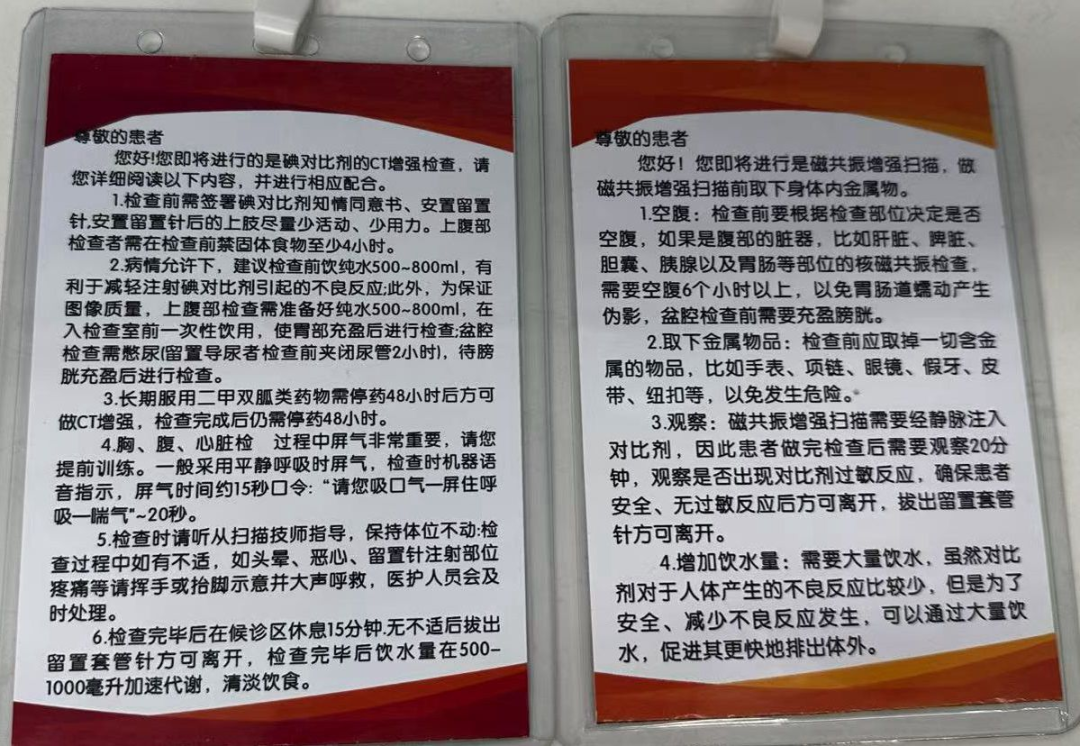 尊敬的患者
您好!您即将进行的是碘对比剂的CT增强检查，请
您详细阅读以下内容，并进行相应配合。
1.检查前需签署碘对比剂知情同意书、安置留置
针,安置留置针后的上肢尽量少活动、少用力。上腹部
检查者需在检查前禁固体食物至少4小时。
2.病情允许下，建议检查前饮纯水500~800ml，有
利于减轻注射碘对比剂引起的不良反应;此外，为保证
图像质量，上腹部检查需准备好纯水500~800ml，在
入检查室前一次性饮用，使胃部充盈后进行检查;盆腔
检查需憋尿(留置导尿者检查前夹闭尿管2小时)，待膀
胱充盈后进行检查。
3.长期服用二甲双胍类药物需停药48小时后方可
做CT增强，检查完成后仍需停药48小时。
4.胸、腹、心脏检 过程中屏气非常重要，请您
提前训练。一般采用平静呼吸时屏气，检查时机器语
音指示，屏气时间约15秒口令:“请您吸口气—屏住呼
吸—喘气"~20秒。
5.检查时请听从扫描技师指导，保持体位不动:检
查过程中如有不适，如头晕、恶心、留置针注射部位
疼痛等请挥手或抬脚示意并大声呼救，医护人员会及
时处理。
6.检查完毕后在候诊区休息15分钟.无不适后拔出
留置套管针方可离开，检查完毕后饮水量在500-
1000毫升加速代谢，清淡饮食。
尊敬的患者
您好！您即将进行是磁共振增强扫描，做
磁共振增强扫描前取下身体内金属物。
1.空腹：检查前要根据检查部位决定是否
空腹，如果是腹部的脏器，比如肝脏、脾脏、
胆囊、胰腺以及胃肠等部位的核磁共振检查，
需要空腹6个小时以上，以免胃肠道蠕动产生
伪影，盆腔检查前需要充盈膀胱。
2.取下金属物品：检查前应取掉一切含金
属的物品，比如手表、项链、眼镜、假牙、皮
带、纽扣等，以免发生危险。
3.观察：磁共振增强扫描需要经静脉注入
对比剂，因此患者做完检查后需要观察20分
钟，观察是否出现对比剂过敏反应，确保患者
安全、无过敏反应后方可离开，拔出留置套管
针方可离开。
4.增加饮水量：需要大量饮水，虽然对比
剂对于人体产生的不良反应比较少，但是为了
安全、减少不良反应发生，可以通过大量饮
水，促进其更快地排出体外。